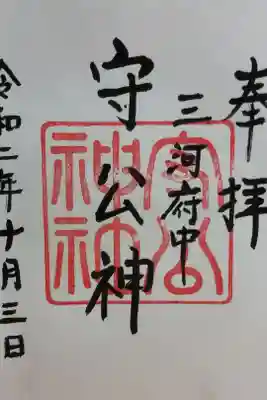 奉拝
三河府中
守公神
令和二年十月三日